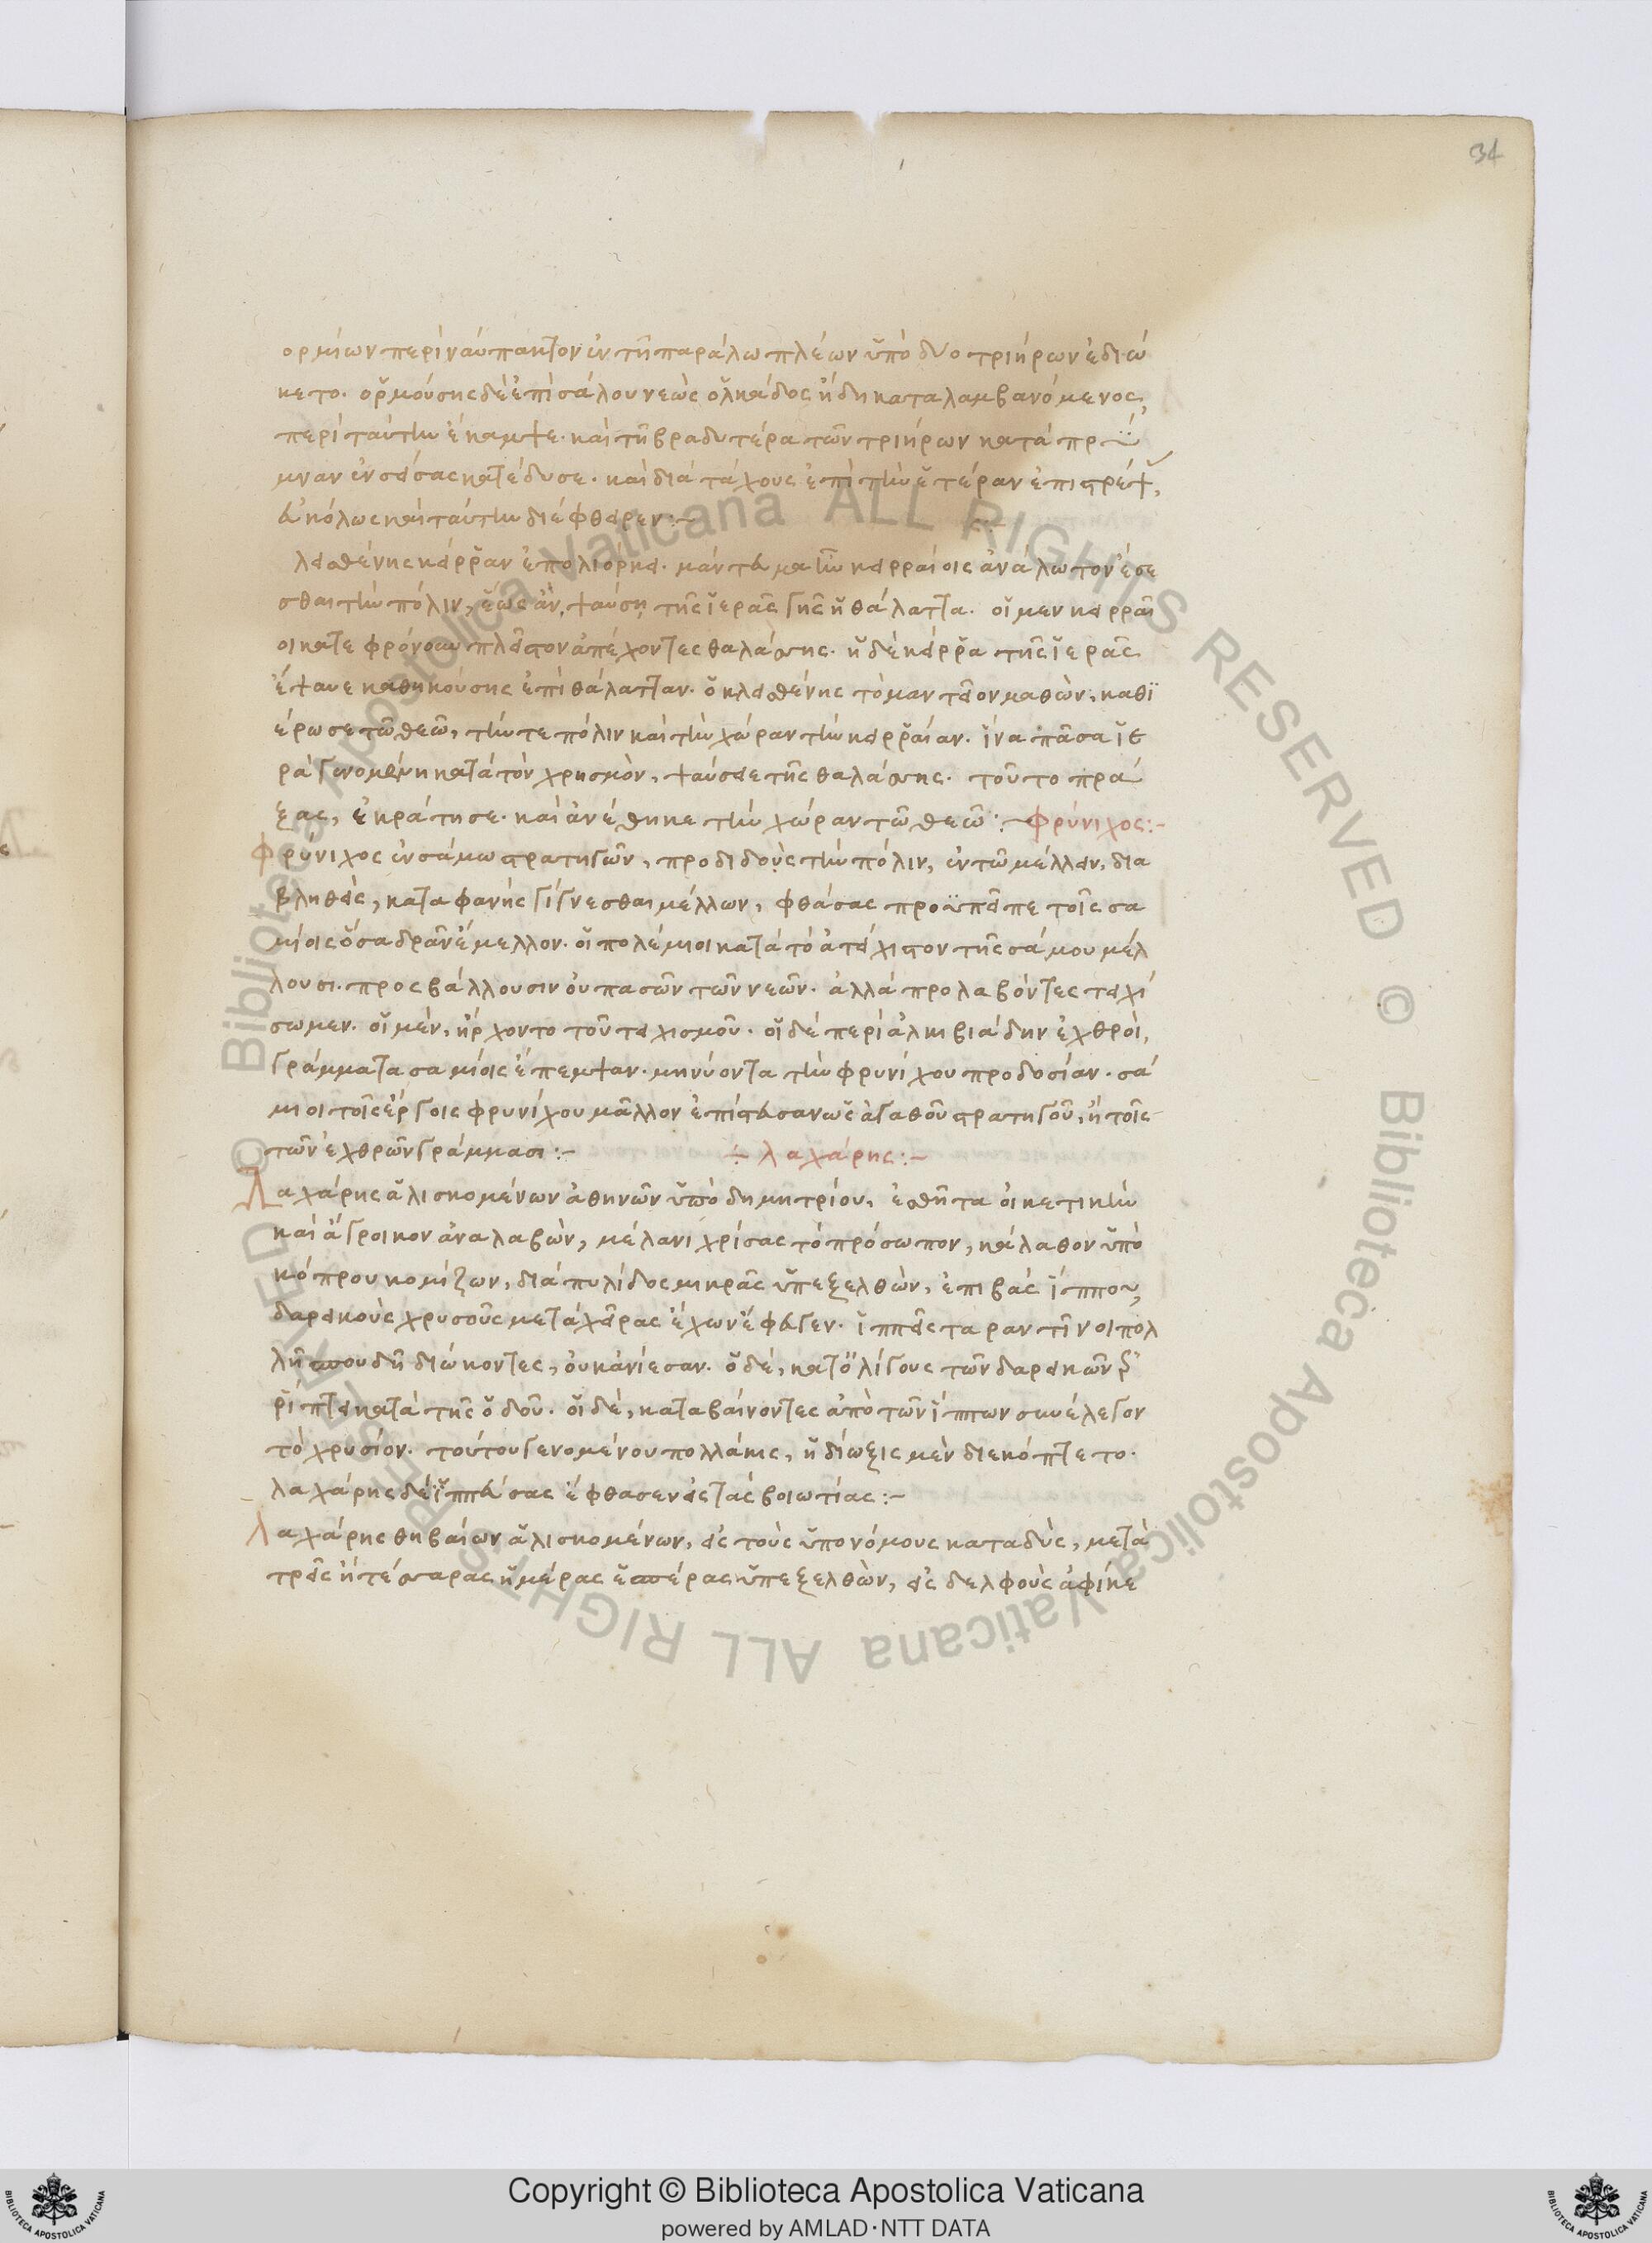 34
ορμίων περὶ ναύπακτον ἐν τῇ παράλω πλέων ὑπὸ δύο τριήρων ἐδιώ
κετο. ὁρμούσης δὲ ἐπὶ σάλου νεὼς ὁλκάδος ἤδη καταλαμβανόμενος,
περὶ ταύτην ἔκαμψε. καὶ τῇ βραδυτέρα τῶν τριήρων κατὰ πρύ
μναν ἐνσείσας κατέδυσε. καὶ διὰ τάχους ἐπὶ τὴν ἑτέραν ἐπιστρέψ,
εὐκόλως καὶ ταύτην διέφθειρεν:~
λεισθένης κίρραν ἐπολιόρκει. μάντευμα ἦν κιρραίοις ἀνάλωτον ἔσε
σθαι τὴν πόλιν, ἕως ἂν, ψαύση τῆς ἱερᾶς γῆς ἡ θάλαττα. οἱ μὲν κιρραῖ
οι κατεφρόνουν πλεῖστον ἀπέχοντες θαλάσσης. ἡ δὲ κίρρα τῆς ἱερᾶς
ἔψαυε καθηκούσης ἐπὶ θάλατταν. ὁ κλεισθένης τὸ μαντεῖον μαθὼν, καθϊ
έρωσε τῶ θεῶ, τήν τε πόλιν καὶ τὴν χώραν τὴν κιρραίαν. ἵνα πᾶσα ἱε
ρὰ γινομένη κατὰ τὸν χρησμὸν, ψαύσειε τῆς θαλάσσης. τοῦτο πρά
ξας, ἐκράτησε. καὶ ἀνέθηκε τὴν χώραν τῶ θεῶ:~ Φρύνιχος:~
Φρύνιχος ἐν σάμω στρατηγῶν, προδιδοὺς τὴν πόλιν, ἐν τῶ μέλλειν, δια
βληθεὶς, καταφανὴς γίγνεσθαι μέλλων, φθάσας προϋπεῖπε τοῖς σα
μίοις ὅσα δρᾶν ἔμελλον. οἱ πολέμιοι κατὰ τὸ ἀτείχιστον τῆς σάμου μέλ
λουσι. προσβάλλουσιν οὐ πασῶν τῶν νεῶν. ἀλλὰ προλαβόντες τειχί
σωμεν. οἱ μὲν, ἤρχοντο τοῦ τειχισμοῦ. οἱ δὲ περὶ ἀλκιβιάδην ἐχθροὶ,
γράμματα σαμίοις ἔπεμψαν. μηνύοντα τὴν φρυνίχου προδοσίαν. σά
μιοι τοῖς ἔργοις φρυνίχου μᾶλλον ἐπίστευσαν ὡς ἀγαθοῦ στρατηγοῦ, ἢ τοῖς
τῶν ἐχθρῶν γράμμασι:~ ÷ λαχάρης:~
Λαχάρης ἁλισκομένων ἀθηνῶν ὑπὸ δημητρίου, ἐσθῆτα οἰκετικὴν
καὶ ἄγροικον ἀναλαβὼν, μέλανι χρίσας τὸ πρόσωπον, κάλαθον ὑπὸ
κόπρου κομίζων, διὰ πυλίδος μικρᾶς ὑπεξελθὼν, ἐπιβὰς ἵππου,
δαρεικοὺς χρυσοῦς μετὰ χεῖρας ἔχων ἔφευγεν. ἱππεῖς ταραντῖνοι πολ
λῆ σπουδῆ διώκοντες, οὐκ ἀνίεσαν. ὁ δὲ, κατ' ὀλίγους τῶν δαρεικῶν
ῥίπτει κατὰ τῆς ὁδοῦ. οἱ δὲ, καταβαίνοντες ἀπὸ τῶν ἵππων συνέλεγον
τὸ χρυσίον. τούτου γενομένου πολλάκις, ἡ δίωξις μὲν διεκόπτετο.
λαχάρης δὲ ἱππεύσας ἔφθασεν εἰς τὰς βοιωτίας:~
Λαχάρης θηβαίων ἁλισκομένων, εἰς τοὺς ὑπονόμους καταδὺς, μετὰ
τρεῖς ἢ τέσσαρας ἡμέρας ἑσπέρας ὑπεξελθὼν, εἰς δελφοὺς ἀφίκε
Copyright © Biblioteca Apostolica Vaticana
powered by AMLAD·NTT DATA